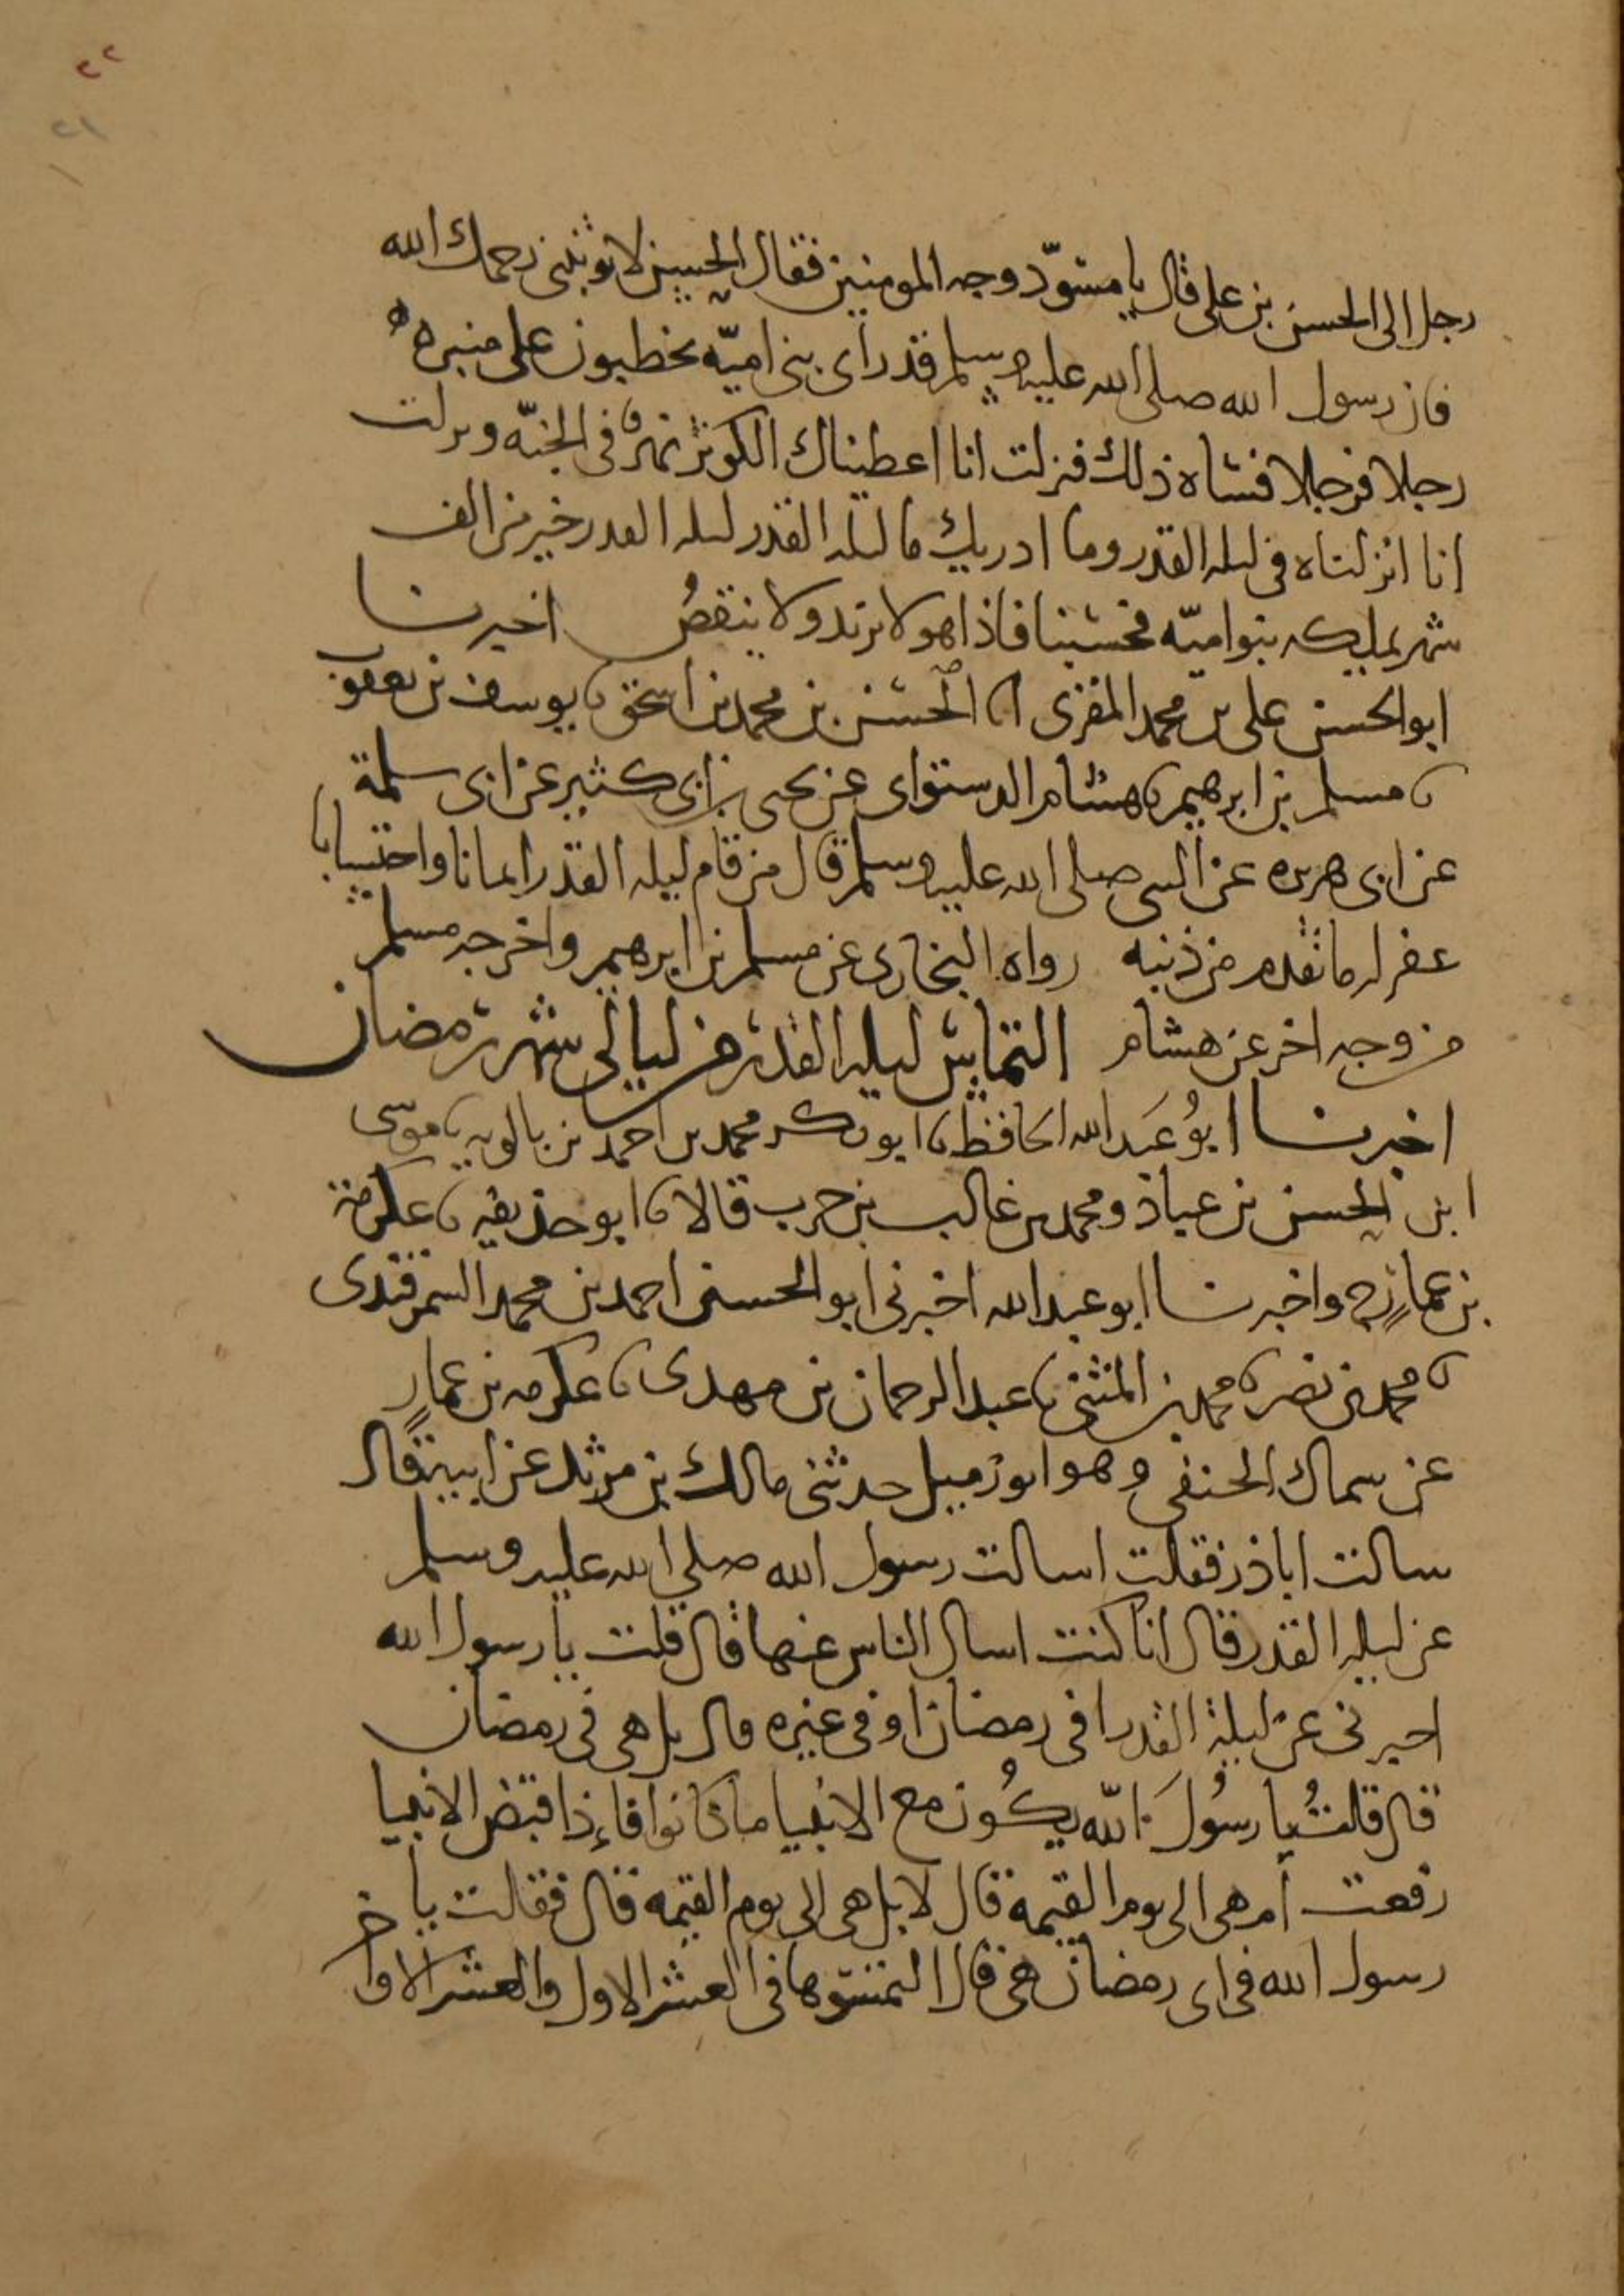 ٢٢
٢١
رجل الى الحسن بن على قال يا مسوّد وجه المومنين فقال الحسين لا تونبنى رحمك الله
فان رسول الله صلى الله عليه وسلم قد رأى بنى اميّه يخطبون على منبره
رجلا فرجلا فساه ذلك فنزلت انا اعطيناك الكوثر نهر فى الجنّه ونزلت
انا انزلناه فى ليله القدر وما ادريك ما ليله القدر ليله القدر خير من الف
شهر يملكه بنو اميّه فحسبنا فاذا هو لا يزيد ولا ينقصُ اخبرنا
ابو الحسن على بن محمد المقرى انا الحسن بن محمد بن اسحق نا يوسف بن يعقوب
نا مسلم بن ابرهيم نا هشام الدستواى عن يحيى بن ابى كثير عن ابى سلمة
عن ابى هريره عن النبى صلى الله عليه وسلم قال من قام ليله القدر ايمانا واحتسابا
غفر له ما تقدم من ذنبه رواه البخارى عن مسلم بن ابرهيم واخرجه مسلم
من وجه اخر عن هشام التماس ليله القدر من ليالى شهر رمضان
اخبرنا ابُو عَبد الله الحافظ نا ابو بكر محمد بن احمد بن بالويه نا موسى
ابن الحسن بن عباد ومحمد بن غالب بن حرب قالا نا ابو حذيفه نا عكرمة
بن عمارٍ ح واخبرنا ابو عبد الله اخبرنى ابو الحسن احمد بن محمد السمرقندى
نا محمد بن نصر نا محمد بن المثنى نا عبد الرحمان بن مهدى نا عكرمه بن عمارٍ
عن سماك الحنفى وهو ابو زميل حدثنى مالك بن مرثد عن ابيه قال
سالت اباذر فقلت اسالت رسول الله صلى الله عليه وسلم
عن ليله القدر قال انا كنت اسال الناس عنها قال قلت يا رسول الله
اخبرنى عن ليلة القدر افى رمضان او فى غيره قال بل هى فى رمضان
قال قلتُ يا رسُولَ الله يكُون مع الانبيا ما كانوا فاءِذا قبض الانبيا
رفعت أم هى الى يوم القيمة قال لا بل هى الى يوم القيمه قال فقلت يا
رسول الله فى اى رمضان هى قال التمسوها فى العشر الاول والعشر الاواخر